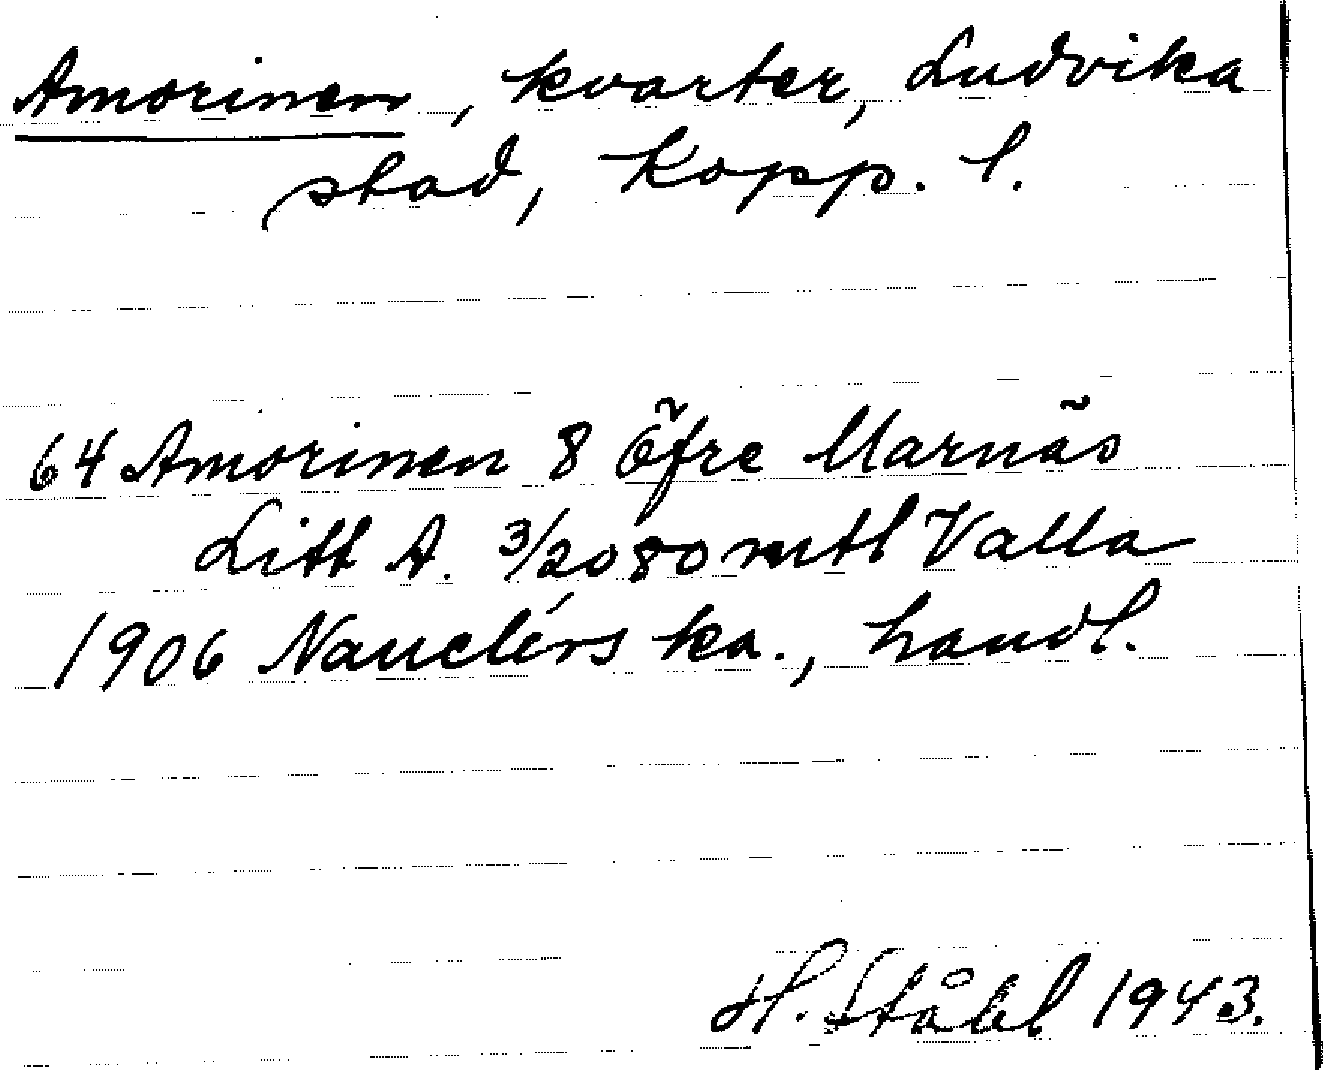 Amorinen, kvarter, Ludvika
stad, Kopp. l.
64 Amorinen 8 Öfre Marnäs
Litt A. 3/2080 mtl Valla
1906 Nauclérs ka., handl.
H. Ståhl 1943.